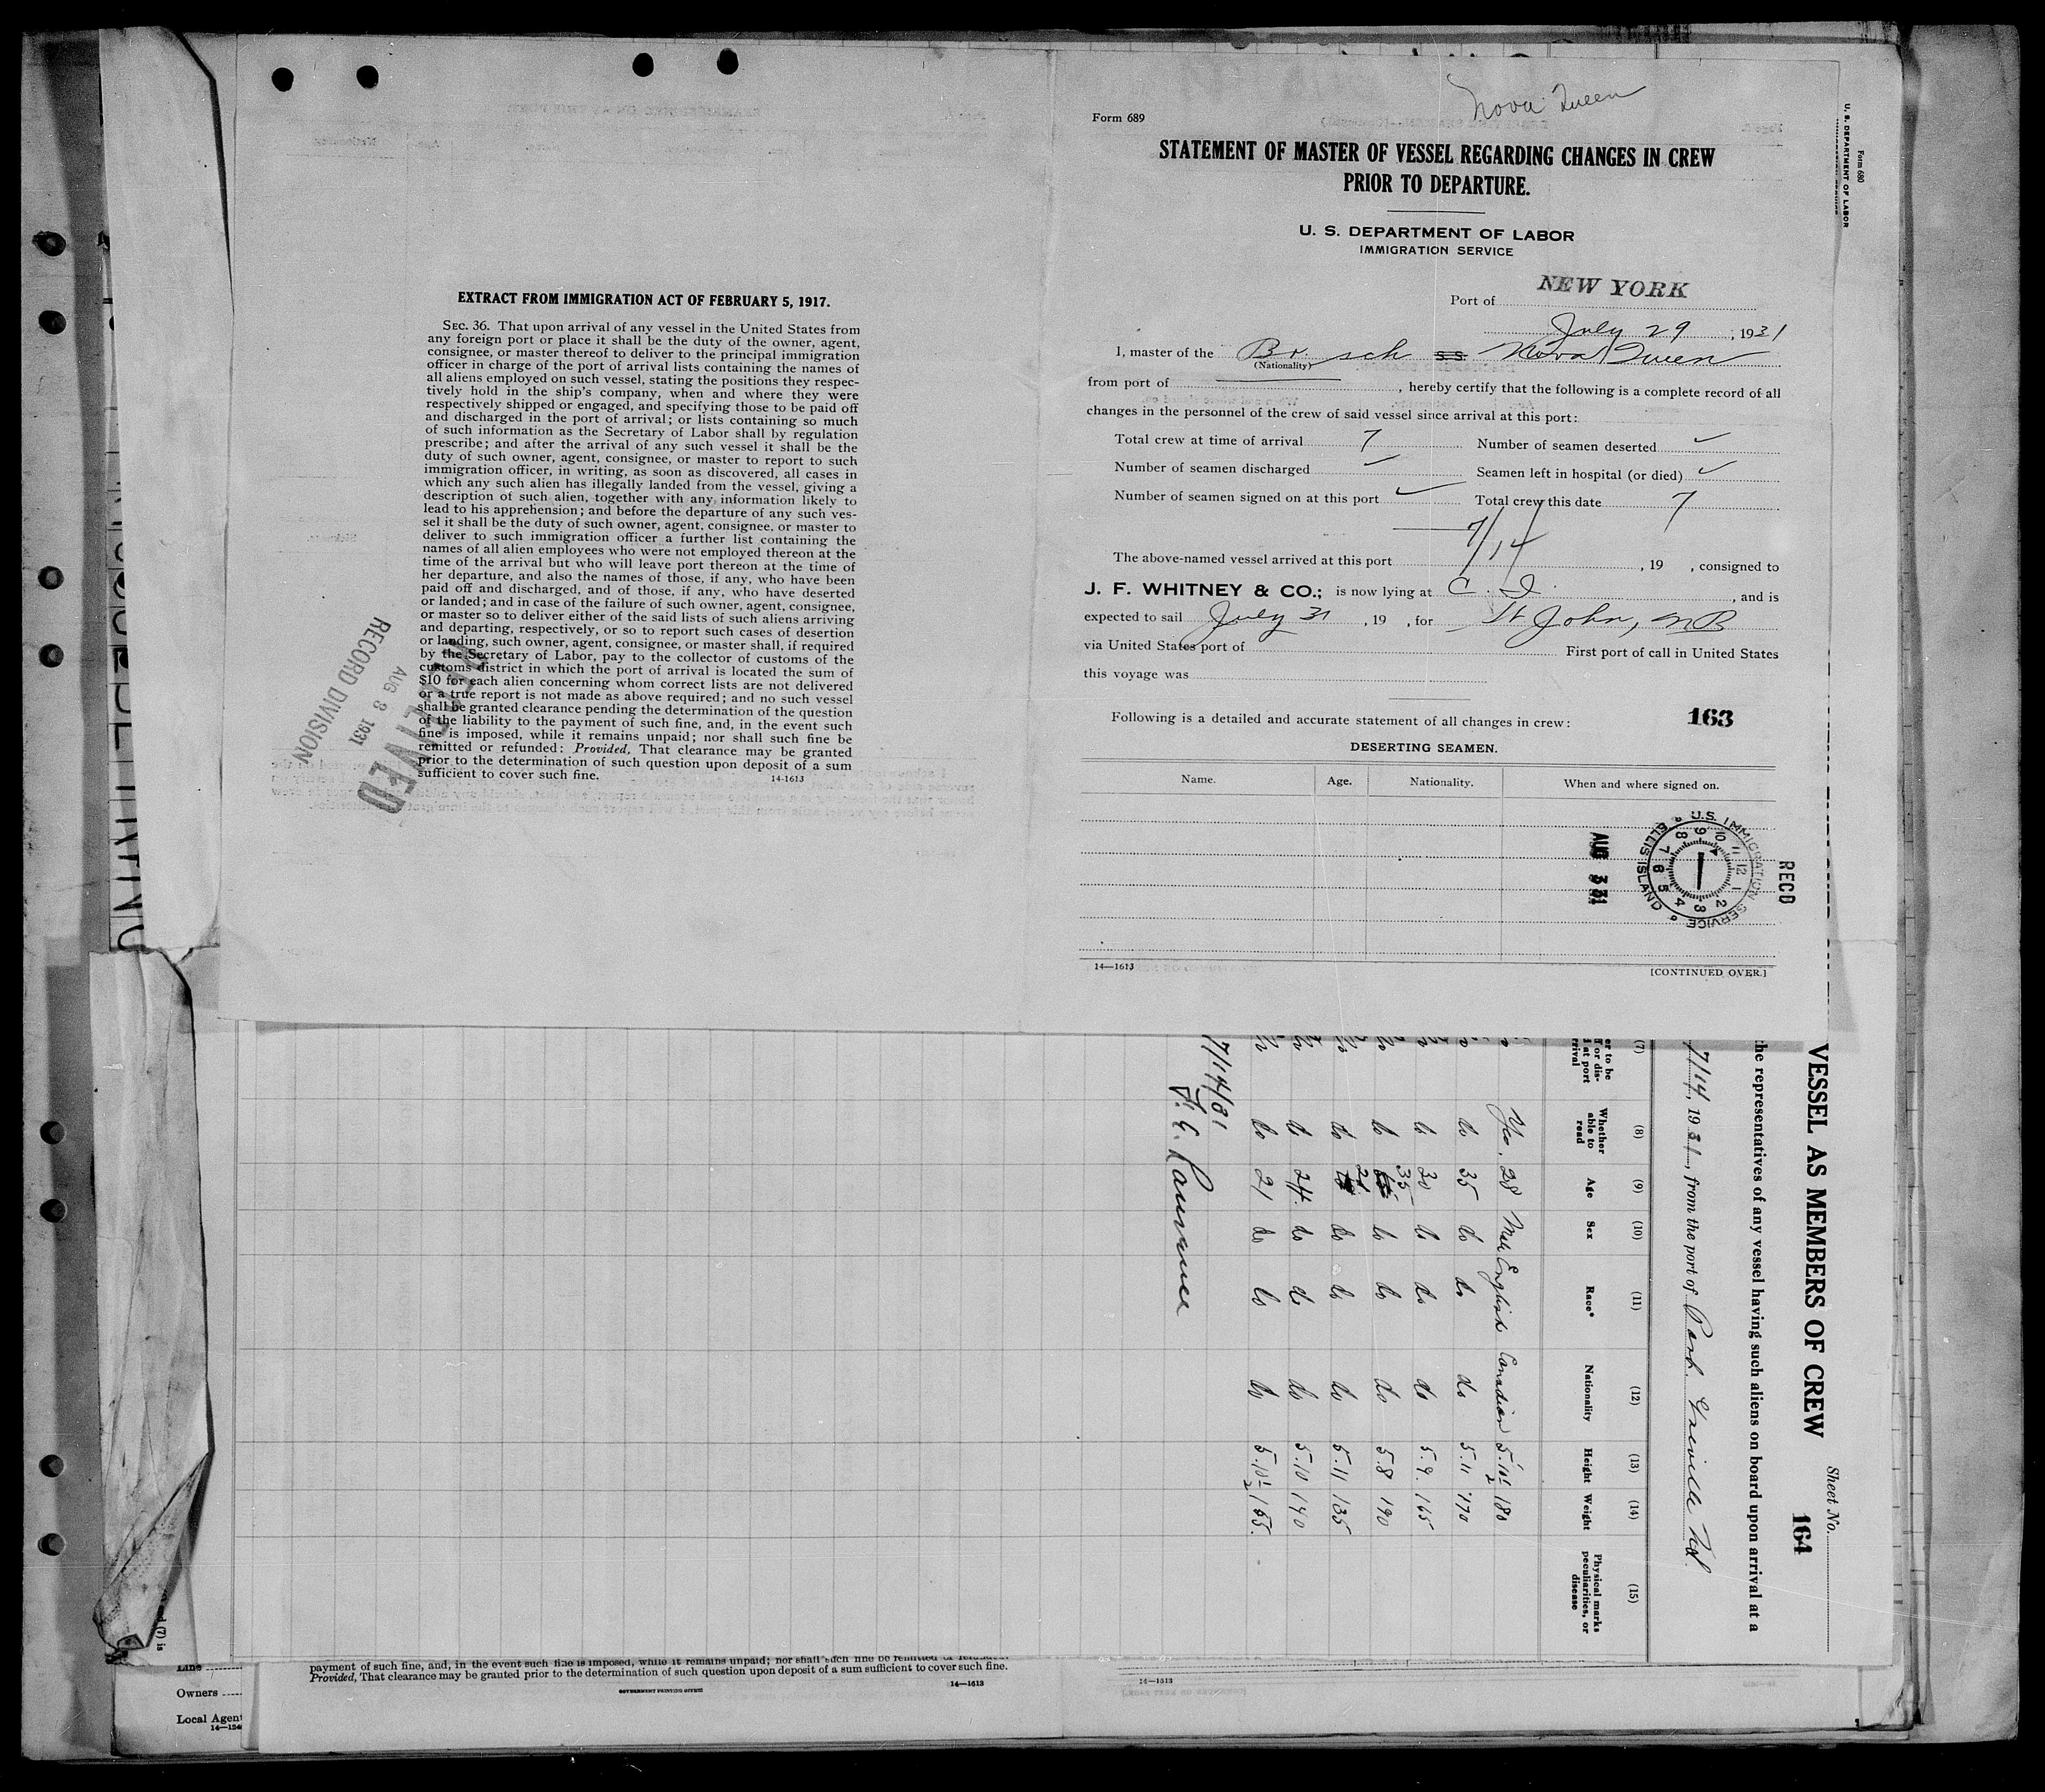 EXTRACT FROM IMMIGRATION ACT OF FEBRUARY 5, 1917.
SEC. 36. That upon arrival of any vessel in the United States from
any foreign port or place it shall be the duty of the owner, agent,
consignee, or master thereof to deliver to the principal immigration
officer in charge of the port of arrival lists containing the names of
all aliens employed on such vessel, stating the positions they respec-
tively hold in the ship's company, when and where they were
respectively shipped or engaged, and specifying those to be paid off
and discharged in the port of arrival; or lists containing so much
of such information as the Secretary of Labor shall by regulation
prescribe; and after the arrival of any such vessel it shall be the
duty of such owner, agent, consignee, or master to report to such
immigration officer, in writing, as soon as discovered, all cases in
which any such alien has illegally landed from the vessel, giving a
description of such alien, together with any information likely to
lead to his apprehension; and before the departure of any such ves-
sel it shall be the duty of such owner, agent, consignee, or master to
deliver to such immigration officer a further list containing the
names of all alien employees who were not employed thereon at the
time of the arrival but who will leave port thereon at the time of
her departure, and also the names of those, if any, who have been
paid off and discharged, and of those, if any, who have deserted
or landed; and in case of the failure of such owner, agent, consignee,
or master so to deliver either of the said lists of such aliens arriving
and departing, respectively, or so to report such cases of desertion
or landing, such owner, agent, consignee, or master shall, if required
by the Secretary of Labor, pay to the collector of customs of the
customs district in which the port of arrival is located the sum of
$10 for each alien concerning whom correct lists are not delivered
or a true report is not made as above required; and no such vessel
shall be granted clearance pending the determination of the question
of the liability to the payment of such fine, and, in the event such
fine is imposed, while it remains unpaid; nor shall such fine be
remitted or refunded: Provided, That clearance may be granted
prior to the determination of such question upon deposit of a sum
sufficient to cover such fine.
14-1613
RECEIVED
AUG 3 1931
RECORD DIVISION
Nova Queen
Form 689
STATEMENT OF MASTER OF VESSEL REGARDING CHANGES IN CREW
PRIOR TO DEPARTURE.
U. S. DEPARTMENT OF LABOR
IMMIGRATION SERVICE
Port of NEW YORK
July 29, 1931
I, master of the Br. sch S.S. Nova Queen
(Nationality)
from port of , hereby certify that the following is a complete record of all
changes in the personnel of the crew of said vessel since arrival at this port:
Total crew at time of arrival 7 Number of seamen deserted ✓
Number of seamen discharged ✓ Seamen left in hospital (or died) ✓
Number of seamen signed on at this port ✓ Total crew this date 7
The above-named vessel arrived at this port 7/14 , 19 , consigned to
J. F. WHITNEY & CO.; is now lying at C. I. , and is
expected to sail July 31 , 19 , for St John, NB
via United States port of First port of call in United States
this voyage was
Following is a detailed and accurate statement of all changes in crew: 163
DESERTING SEAMEN.
Name. Age. Nationality. When and where signed on.
RECD
AUG 3 31
U.S. IMMIGRATION SERVICE
ELLIS ISLAND
14—1613 [CONTINUED OVER.]
Form 680
U. S. DEPARTMENT OF LABOR
VESSEL AS MEMBERS OF CREW
Sheet No.
164
the representatives of any vessel having such aliens on board upon arrival at a
7/14, 1931, from the port of Port Greville NS.
(7) (8) (9) (10) (11) (12) (13) (14) (15)
Whether able to read Age Sex Race* Nationality Height Weight Physical marks, peculiarities, or disease
Yes 28 Male English Canadian 5.10½ 180
do 35 do do do 5.11 170
do 30 do do do 5.9. 165
do 35 do do do 5.8 190
do 21 do do do 5.11 135
do 24 do do do 5.10 140
do 21 do do do 5.10½ 165.
7/14/31
payment of such fine, and, in the event such fine is imposed, while it remains unpaid; nor shall such fine be remitted or refunded:
Provided, That clearance may be granted prior to the determination of such question upon deposit of a sum sufficient to cover such fine.
GOVERNMENT PRINTING OFFICE 14—1613
14—1613
Line
Owners
Local Agent